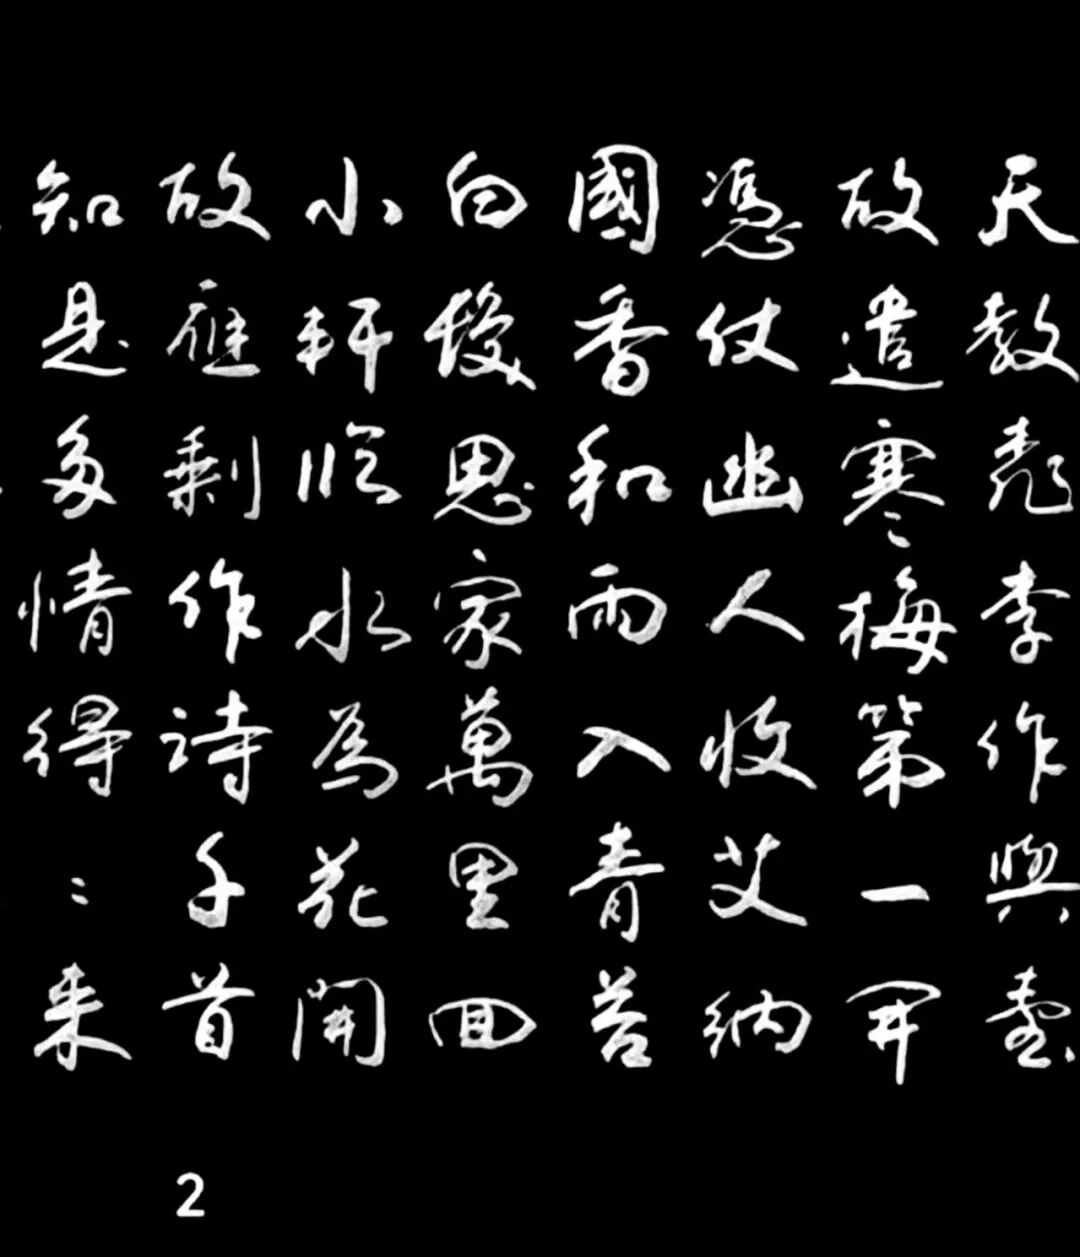 天教桃李作輿臺
故遣寒梅第一開
憑仗幽人收艾納
國香和雨入青苔
白髮思家萬里回
小軒臨水為花開
故應剩作詩千首
知是多情得〻來
2